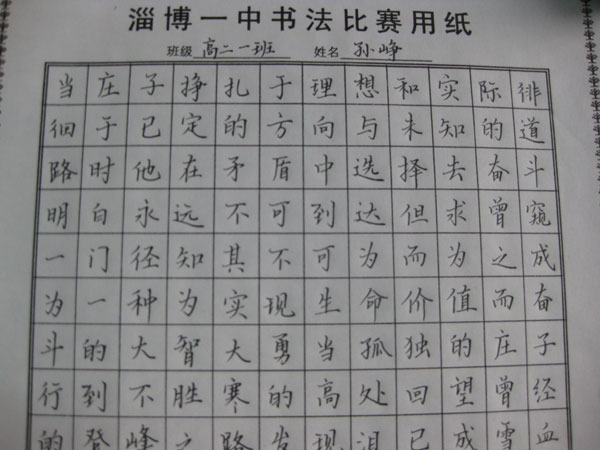 淄博一中书法比赛用纸
班级 高二一班 姓名 孙峥
当庄子挣扎于理想和实际徘
徊于已定的方向与未知的道
路时他在矛盾中选择去奋斗
明白永远不可到达但求曾窥
一门径知其不可为而为之成
为一种为实现生命价值而奋
斗的大智大勇当孤独的庄子
行到不胜寒的高处回望曾经
的登峰之路发现泪已成雪血